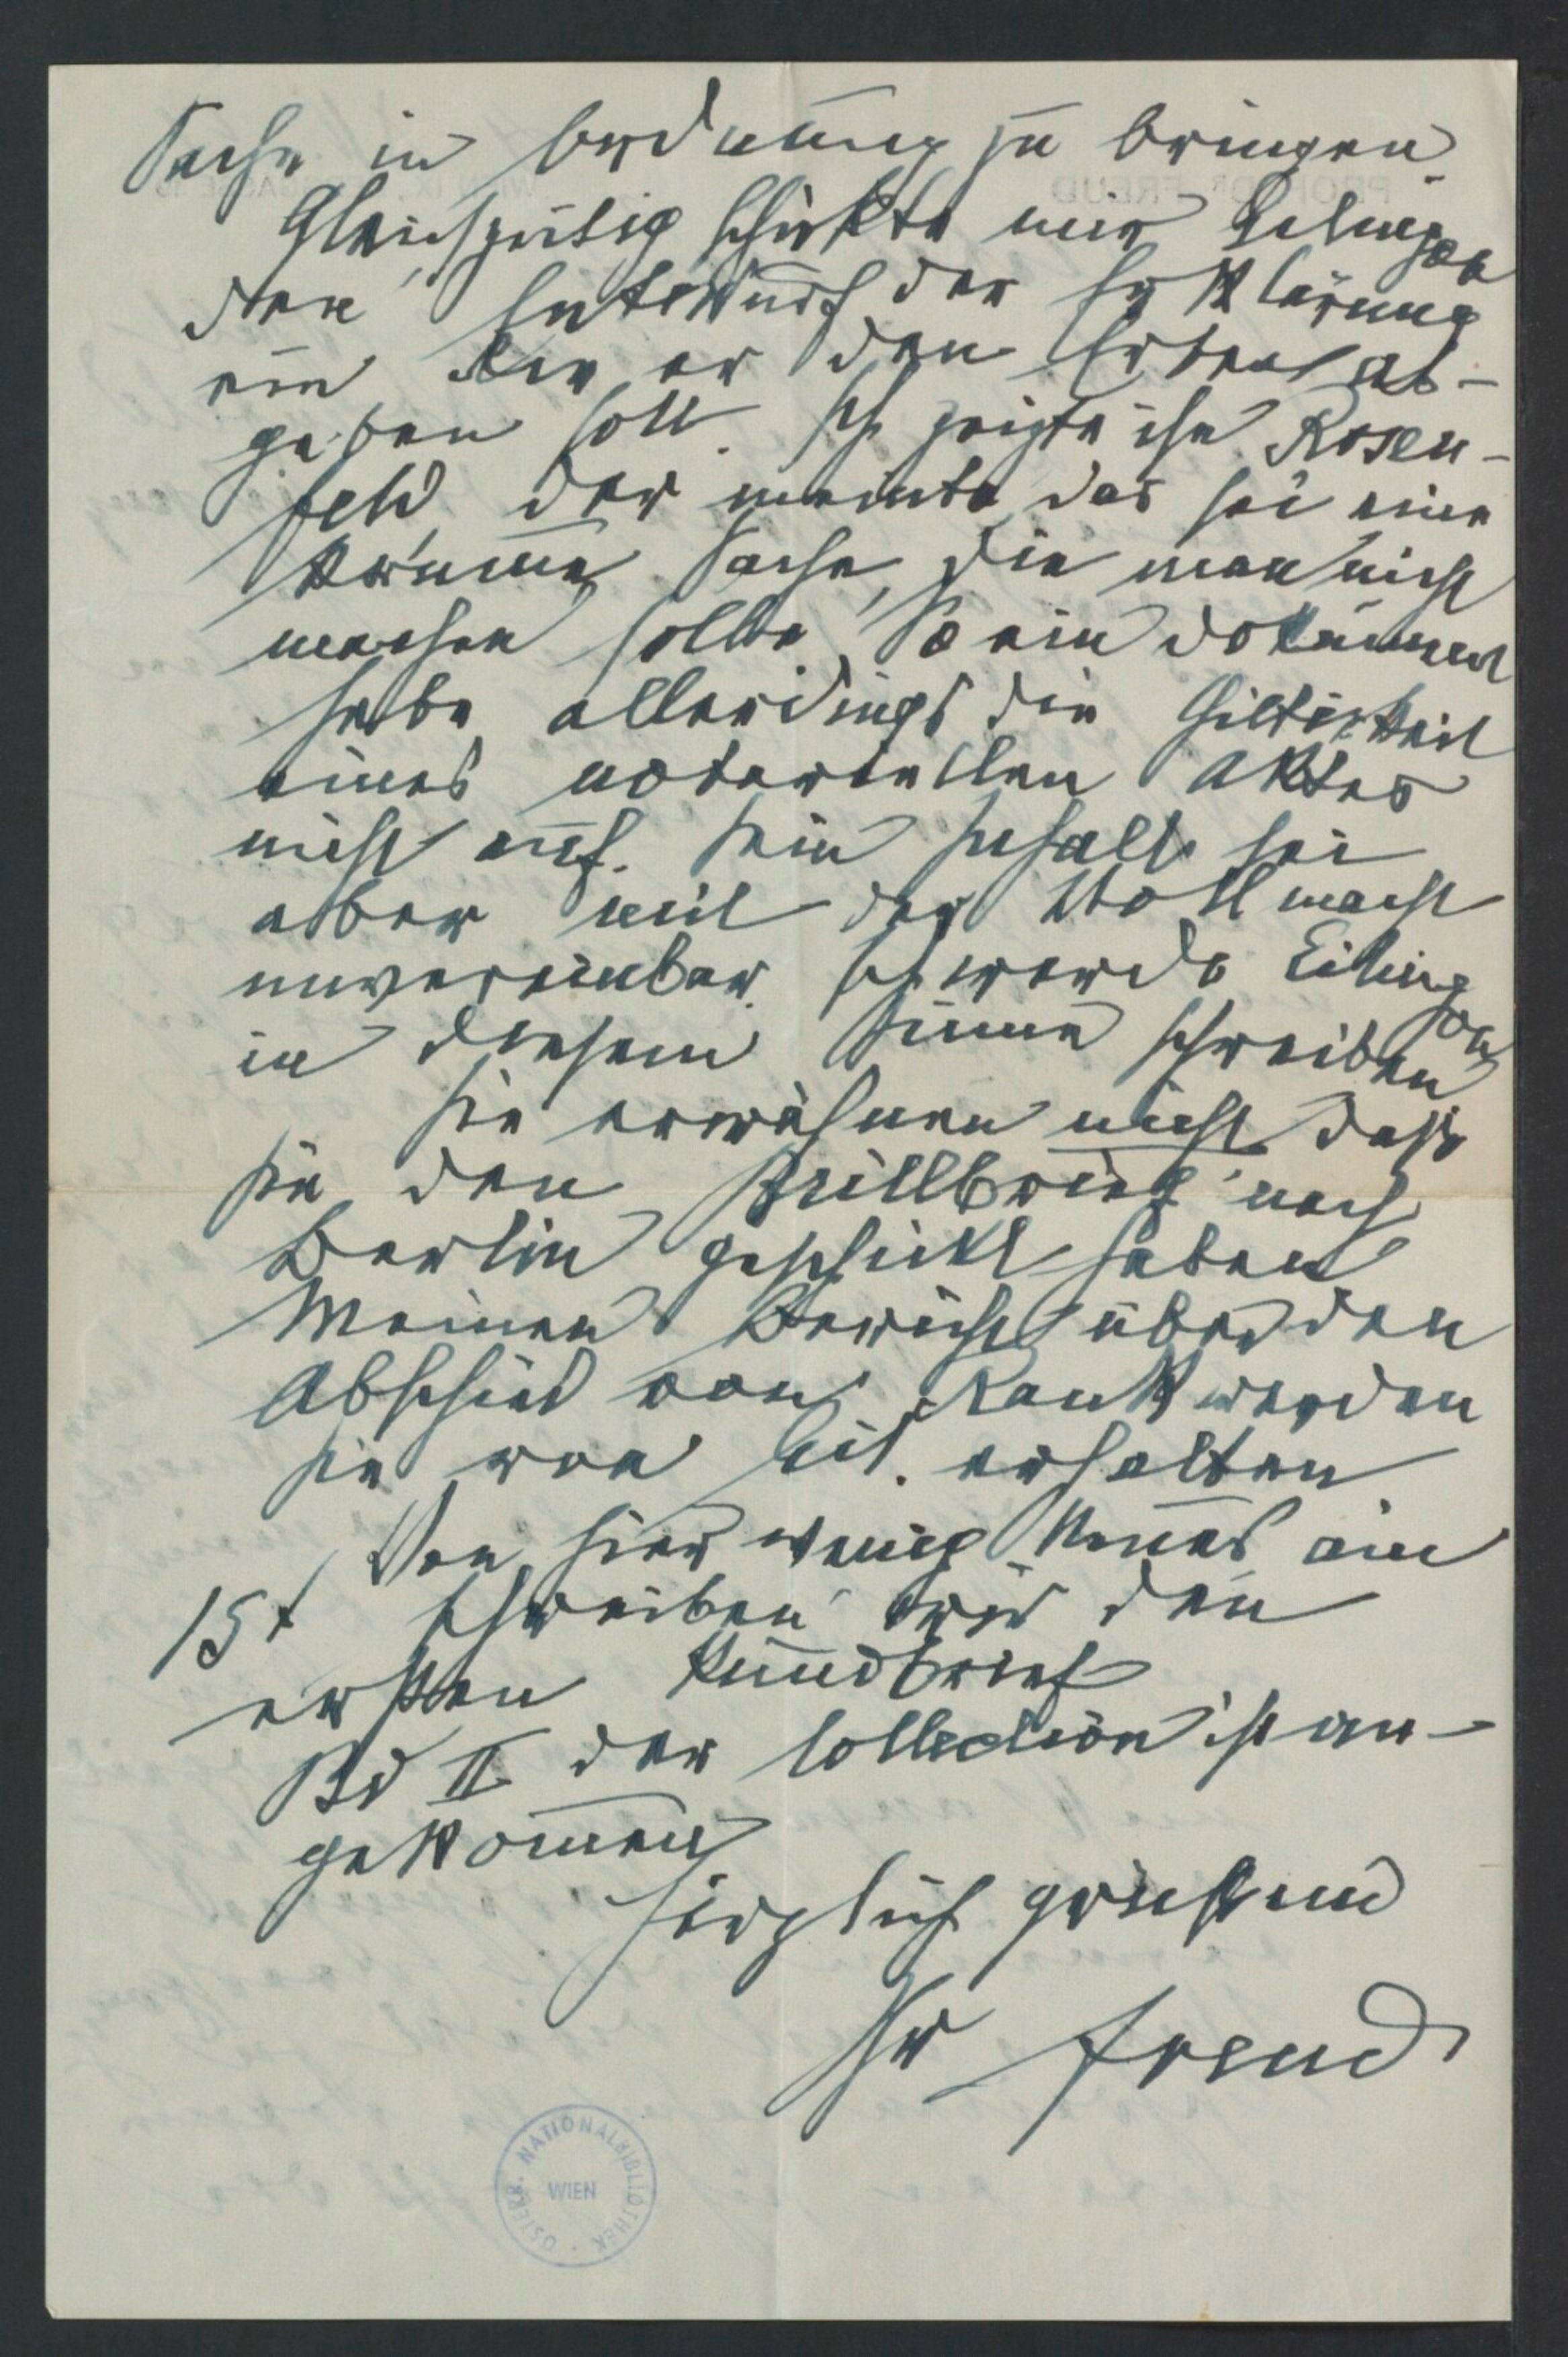 Sache in Ordnung zu bringen.
Gleichzeitig schickte mir Eitingon
den Entwurf der Erklärung
ein die er den Erben ab-
geben soll. Ich zeigte ihn Rosen-
feld, der meinte das sei eine
krumme Sache, die man nicht
machen sollte. So ein Dokument
hebe allerdings die Giltigkeit
eines notariellen Aktes
nicht auf. Sein Inhalt sei
aber mit der Vollmacht
unvereinbar. Ich werde Eitingon
in diesem Sinne schreiben
Sie erwähnen nicht, daß
Sie den Brillbrief nach
Berlin geschickt haben
Meinen Bericht über den
Abschied von Rank werden
Sie von Eit. erhalten
Von hier wenig Neues am
15t schreiben wir den
ersten Rundbrief
Bd II der Collection ist an-
gekommen
Herzlich grüßend
Ihr Freud
ÖSTERR. NATIONALBIBLIOTHEK
WIEN